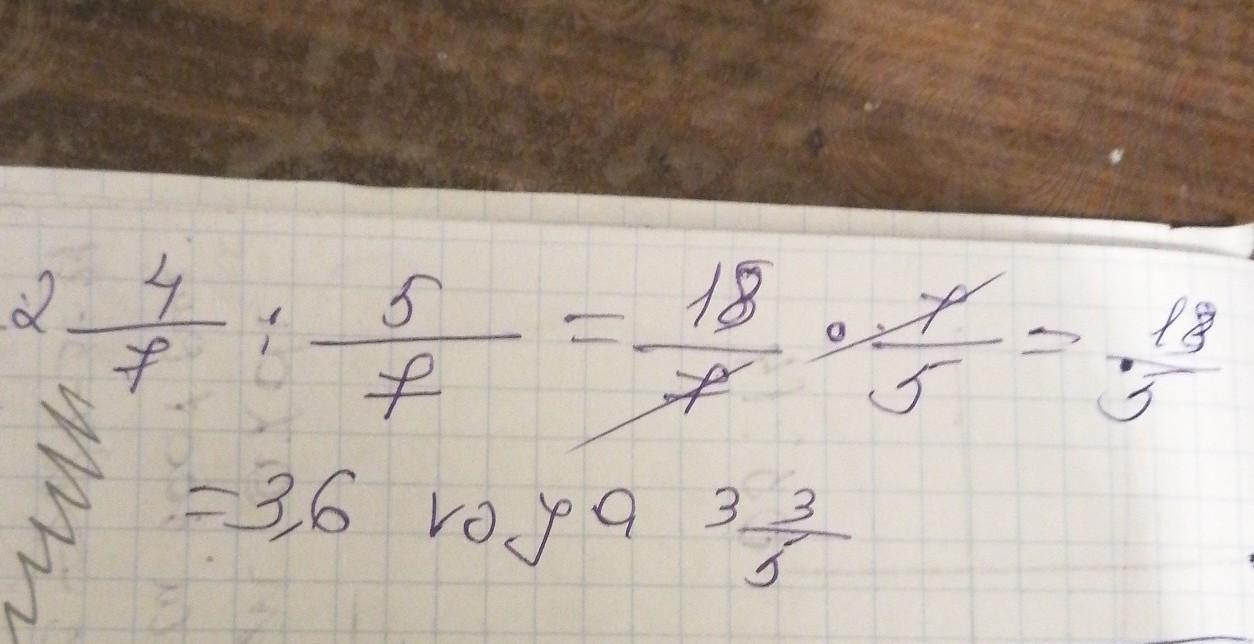 2 4/7 : 5/7 = 18/7 · 7/5 = 18/5
= 3,6 года 3 3/5